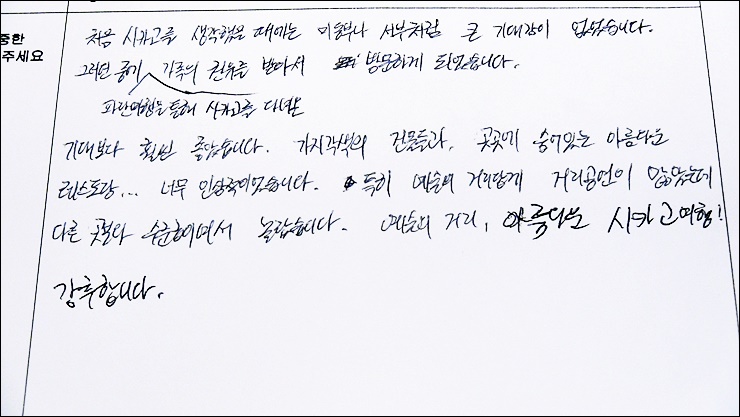 중한
주세요
처음 시카고를 생각했을 때에는 미동부나 서부처럼 큰 기대감이 없었습니다.
그러던 중에 가족의 권유를 받아서 방문하게 되었습니다.
파란여행을 통해 시카고를 다녀온
기대보다 훨씬 좋았습니다. 가지각색의 건물들과, 곳곳에 숨어있는 아름다운
레스토랑... 너무 인상적이었습니다. 특히 예술의 거리답게 거리공연이 많았는데
다른 곳보다 수준높이여서 놀랐습니다. 예술의 거리, 아름다운 시카고여행!
강추합니다.